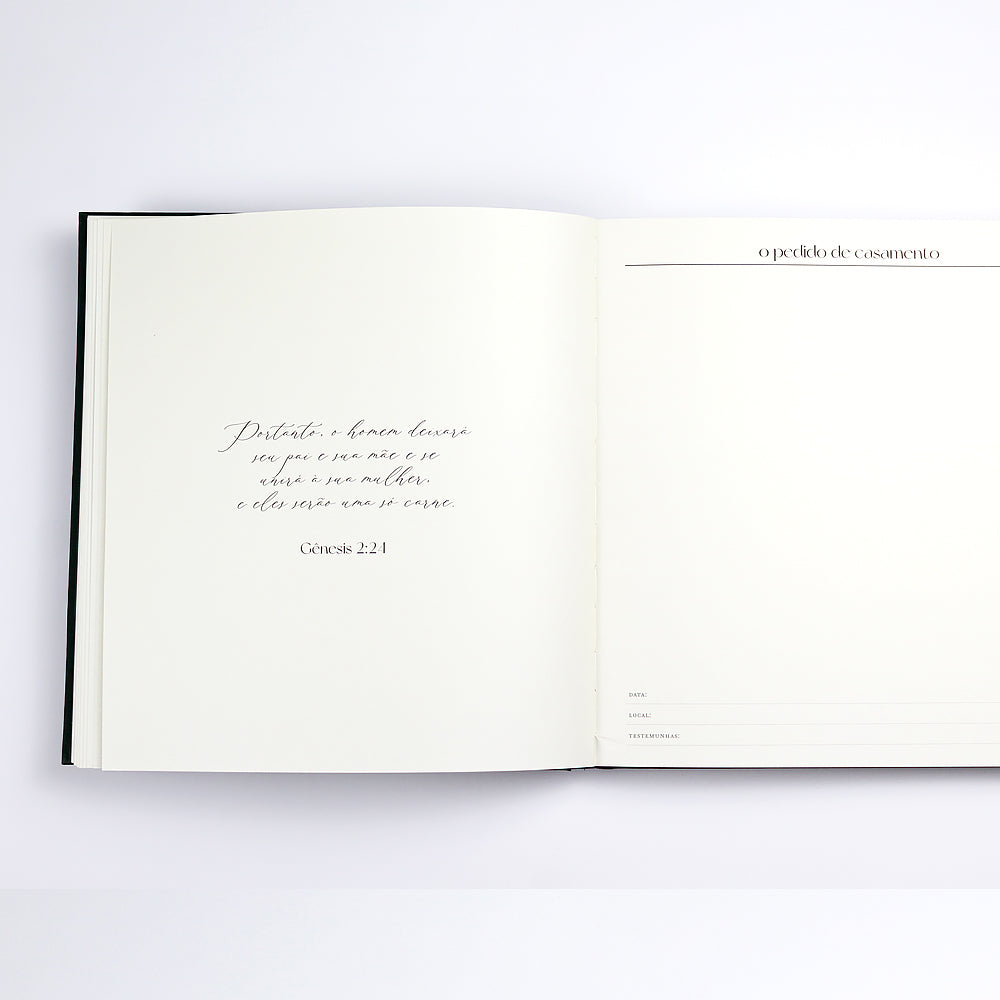 Portanto, o homem deixará
seu pai e sua mãe e se
unirá à sua mulher,
e eles serão uma só carne.
Gênesis 2:24
o pedido de casamento
DATA:
LOCAL:
TESTEMUNHAS: